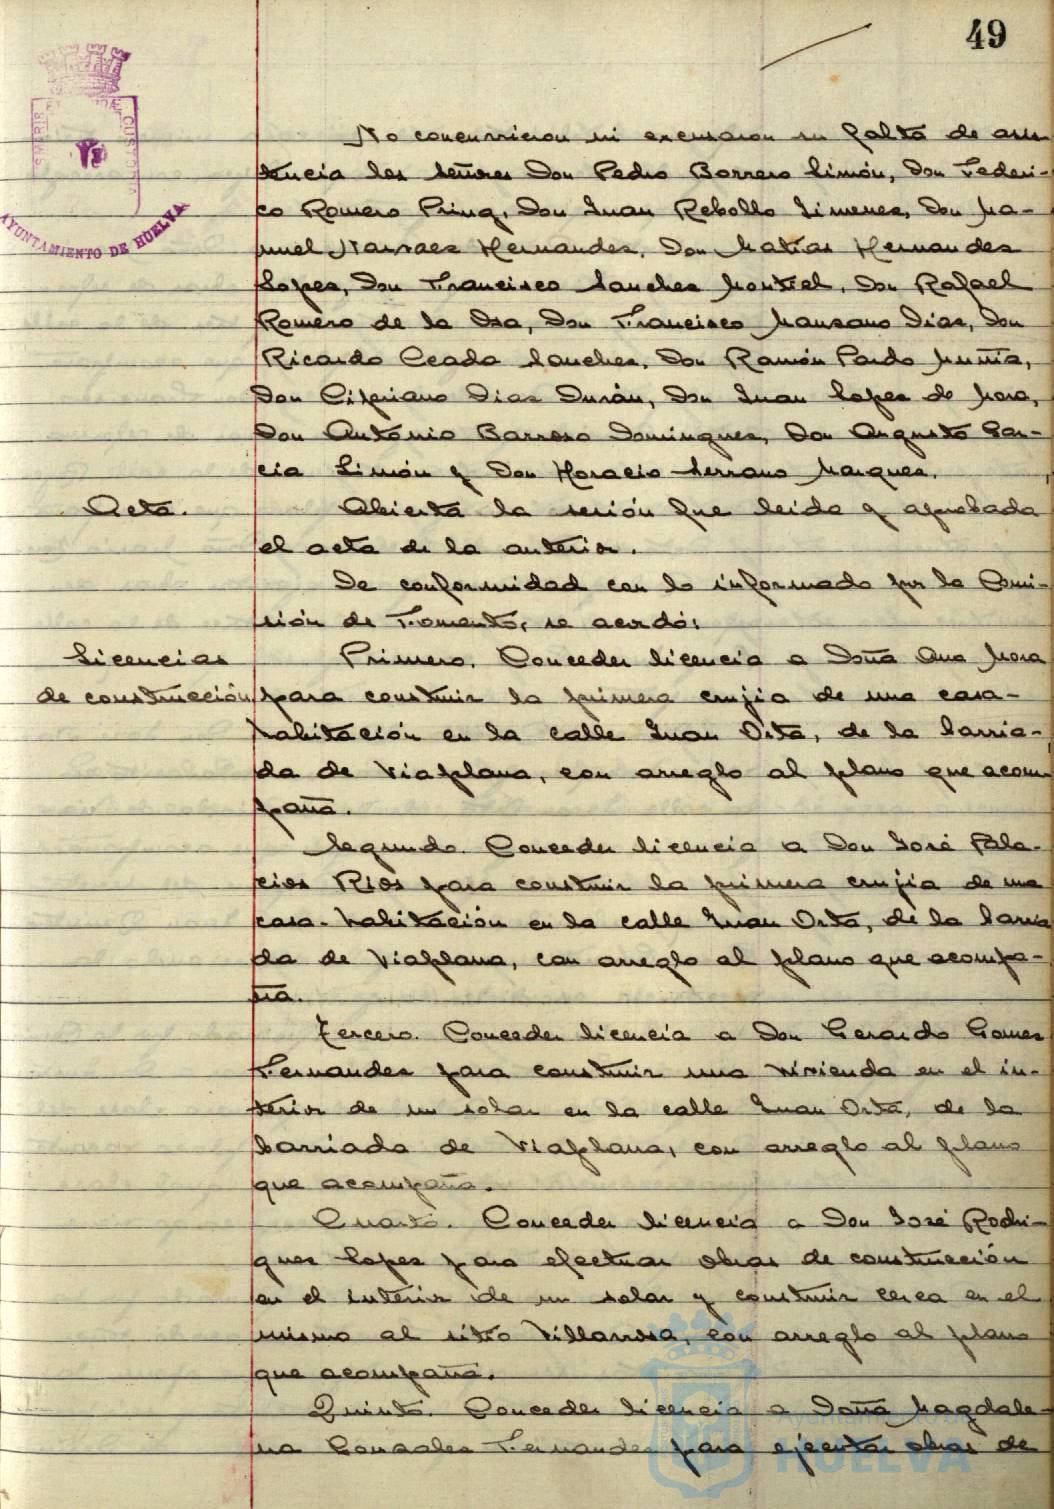 49
AYUNTAMIENTO DE HUELVA
No concurrieron ni excusaron su falta de asis-
tencia los señores Don Pedro Borrero Limón, Don Federi-
co Romero Pring, Don Juan Rebollo Jimenez, Don Ma-
nuel Narvaez Hernandez, Don Matías Hernandez
Lopez, Don Francisco Sanchez Montiel, Don Rafael
Romero de la Osa, Don Francisco Manzano Dias, Don
Ricardo Ceada Sanchez, Don Ramón Pardo Muñiz,
Don Cipriano Dias Durán, Don Juan Lopez de Mora,
Don Antonio Barroso Dominguez, Don Augusto Gar-
cia Limón y Don Horacio Serrano Marquez.
Acta.
Abierta la sesión fue leida y aprobada
el acta de la anterior.
De conformidad con lo informado por la Comi-
sión de Fomento, se acordó:
Licencias
de construcción
Primero. Conceder licencia a Doña Ana Mora
para construir la primera crujia de una casa-
habitación en la calle Juan Orta, de la barria-
da de Viaplana, con arreglo al plano que acom-
paña.
Segundo. Conceder licencia a Don José Pala-
cios Rios para construir la primera crujia de una
casa-habitación en la calle Juan Orta, de la barria
da de Viaplana, con arreglo al plano que acompa-
ña.
Tercero. Conceder licencia a Don Gerardo Gomez
Fernandez para construir una vivienda en el in-
terior de un solar en la calle Juan Orta, de la
barriada de Viaplana, con arreglo al plano
que acompaña.
Cuarto. Conceder licencia a Don José Rodri-
guez Lopez para efectuar obras de construcción
en el interior de un solar y construir cerca en el
mismo al sitio Villarrosa, con arreglo al plano
que acompaña.
Quinto. Conceder licencia a Doña Magdale-
na Gonzalez Fernandez para ejecutar obras de
Ayuntamiento de
HUELVA